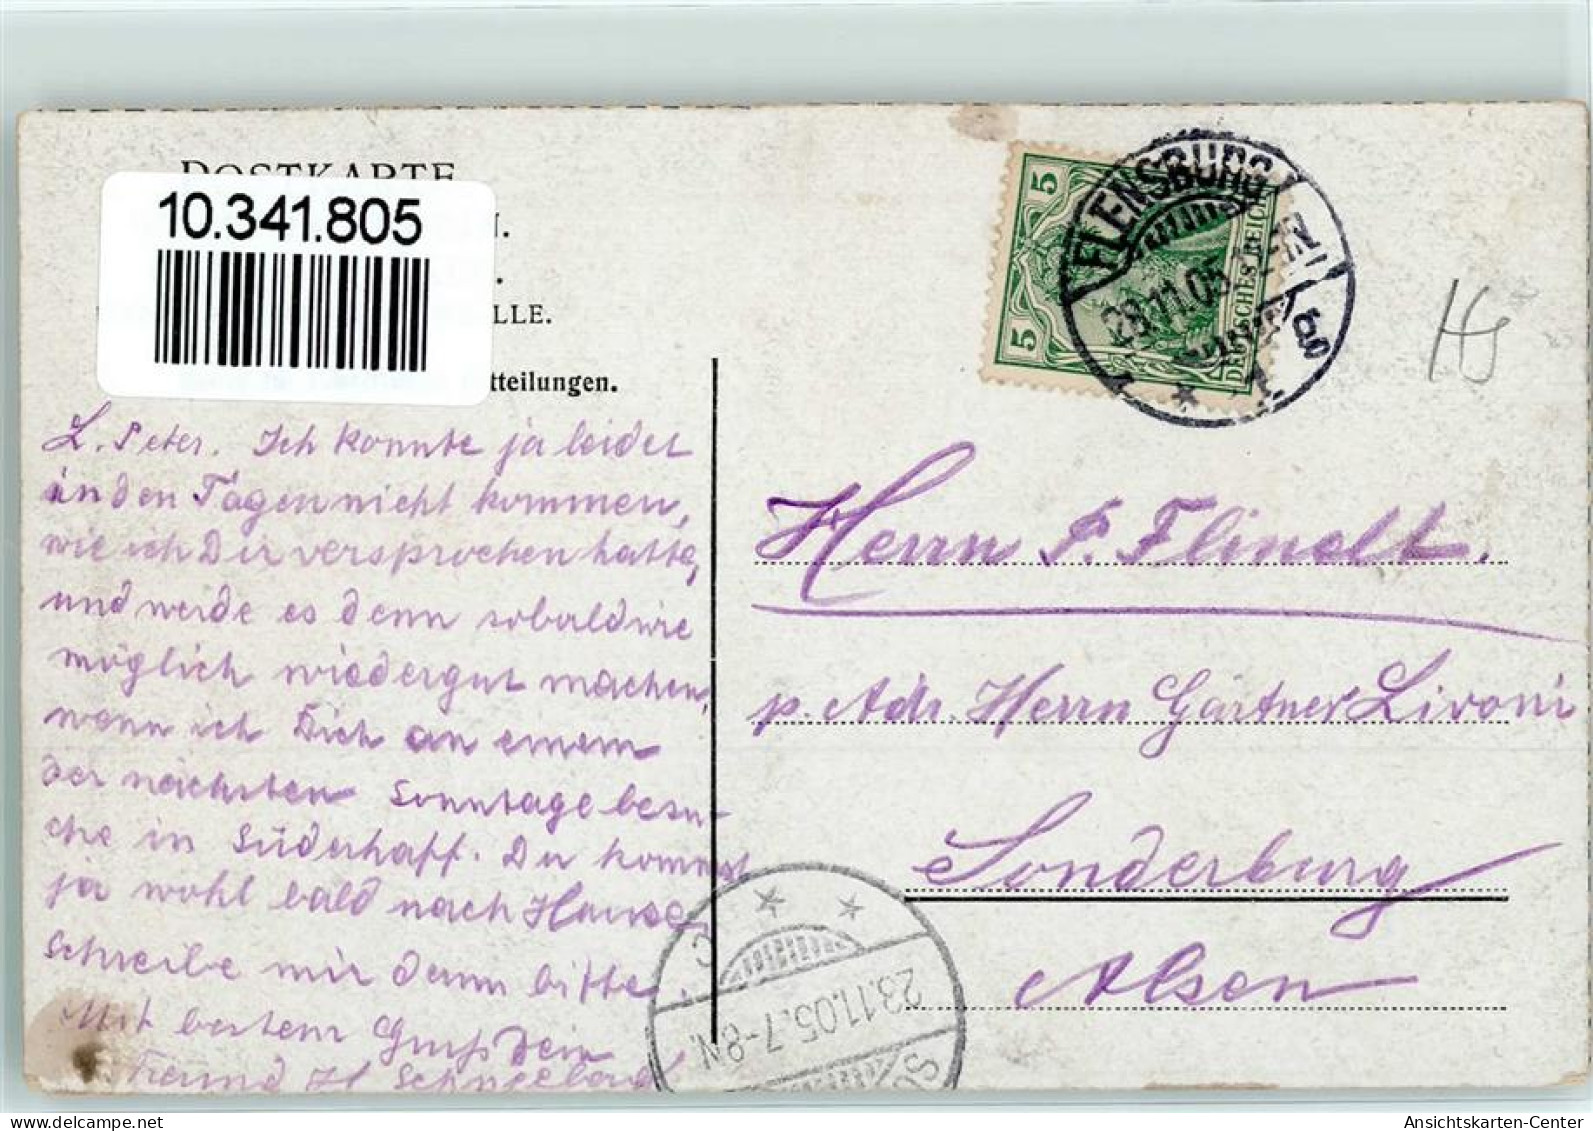 POSTKARTE
10.341.805
LLE.
tteilungen.
L. Peter. Ich konnte ja leider
in den Tagen nicht kommen,
wie ich Dir versprochen hatte,
und werde es denn sobald wie
möglich wiedergut machen,
wenn ich Dich an einem
der nächsten Sonntage besu-
che in Süderhaff. Du kommst
ja wohl bald nach Hause,
schreibe mir dann bitte.
Mit bestem Gruß Dein
Freund H.
5
5
DEUTSCHES REICH
FLENSBURG
23.11.05
* 1 g
Herrn P. Flindt.
p. Adr. Herrn Gärtner Livoni
Sonderburg
Alsen
23.11.05.7-8N.
Ansichtskarten-Center